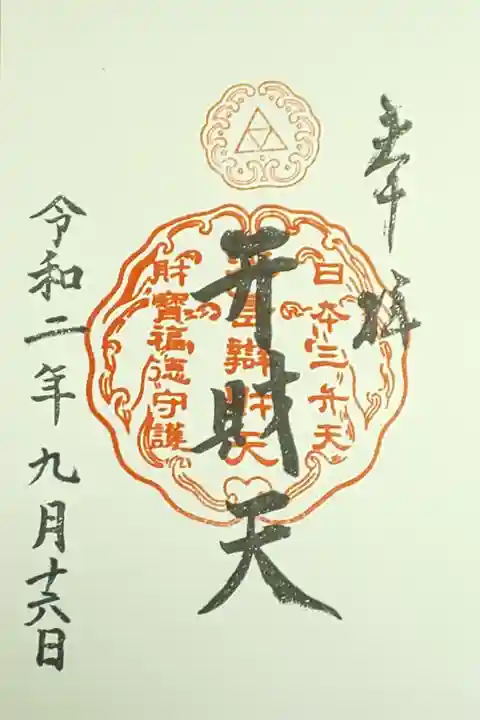 奉拝
日本三弁天
弁財天
財寳福徳守護
令和二年九月十六日